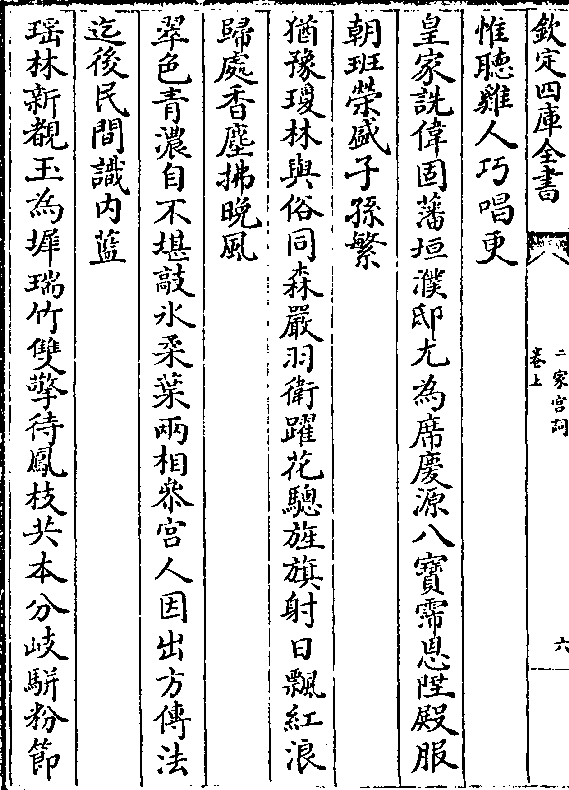 欽定四庫全書
二家宮詞
卷上
六
惟聽雞人巧唱更
皇家詵偉固藩垣濮邸尤為席慶源八寶霈恩陞殿服
朝班榮盛子孫繁
猶豫瓊林與俗同森嚴羽衛躍花驄旌旗射日飄紅浪
歸處香塵拂晚風
翠色青濃自不堪敲氷柔葉兩相叅宮人因出方傳法
迄後民間識内藍
瑶林新覩玉為墀瑞竹雙擎待鳳枝共本分岐駢粉節